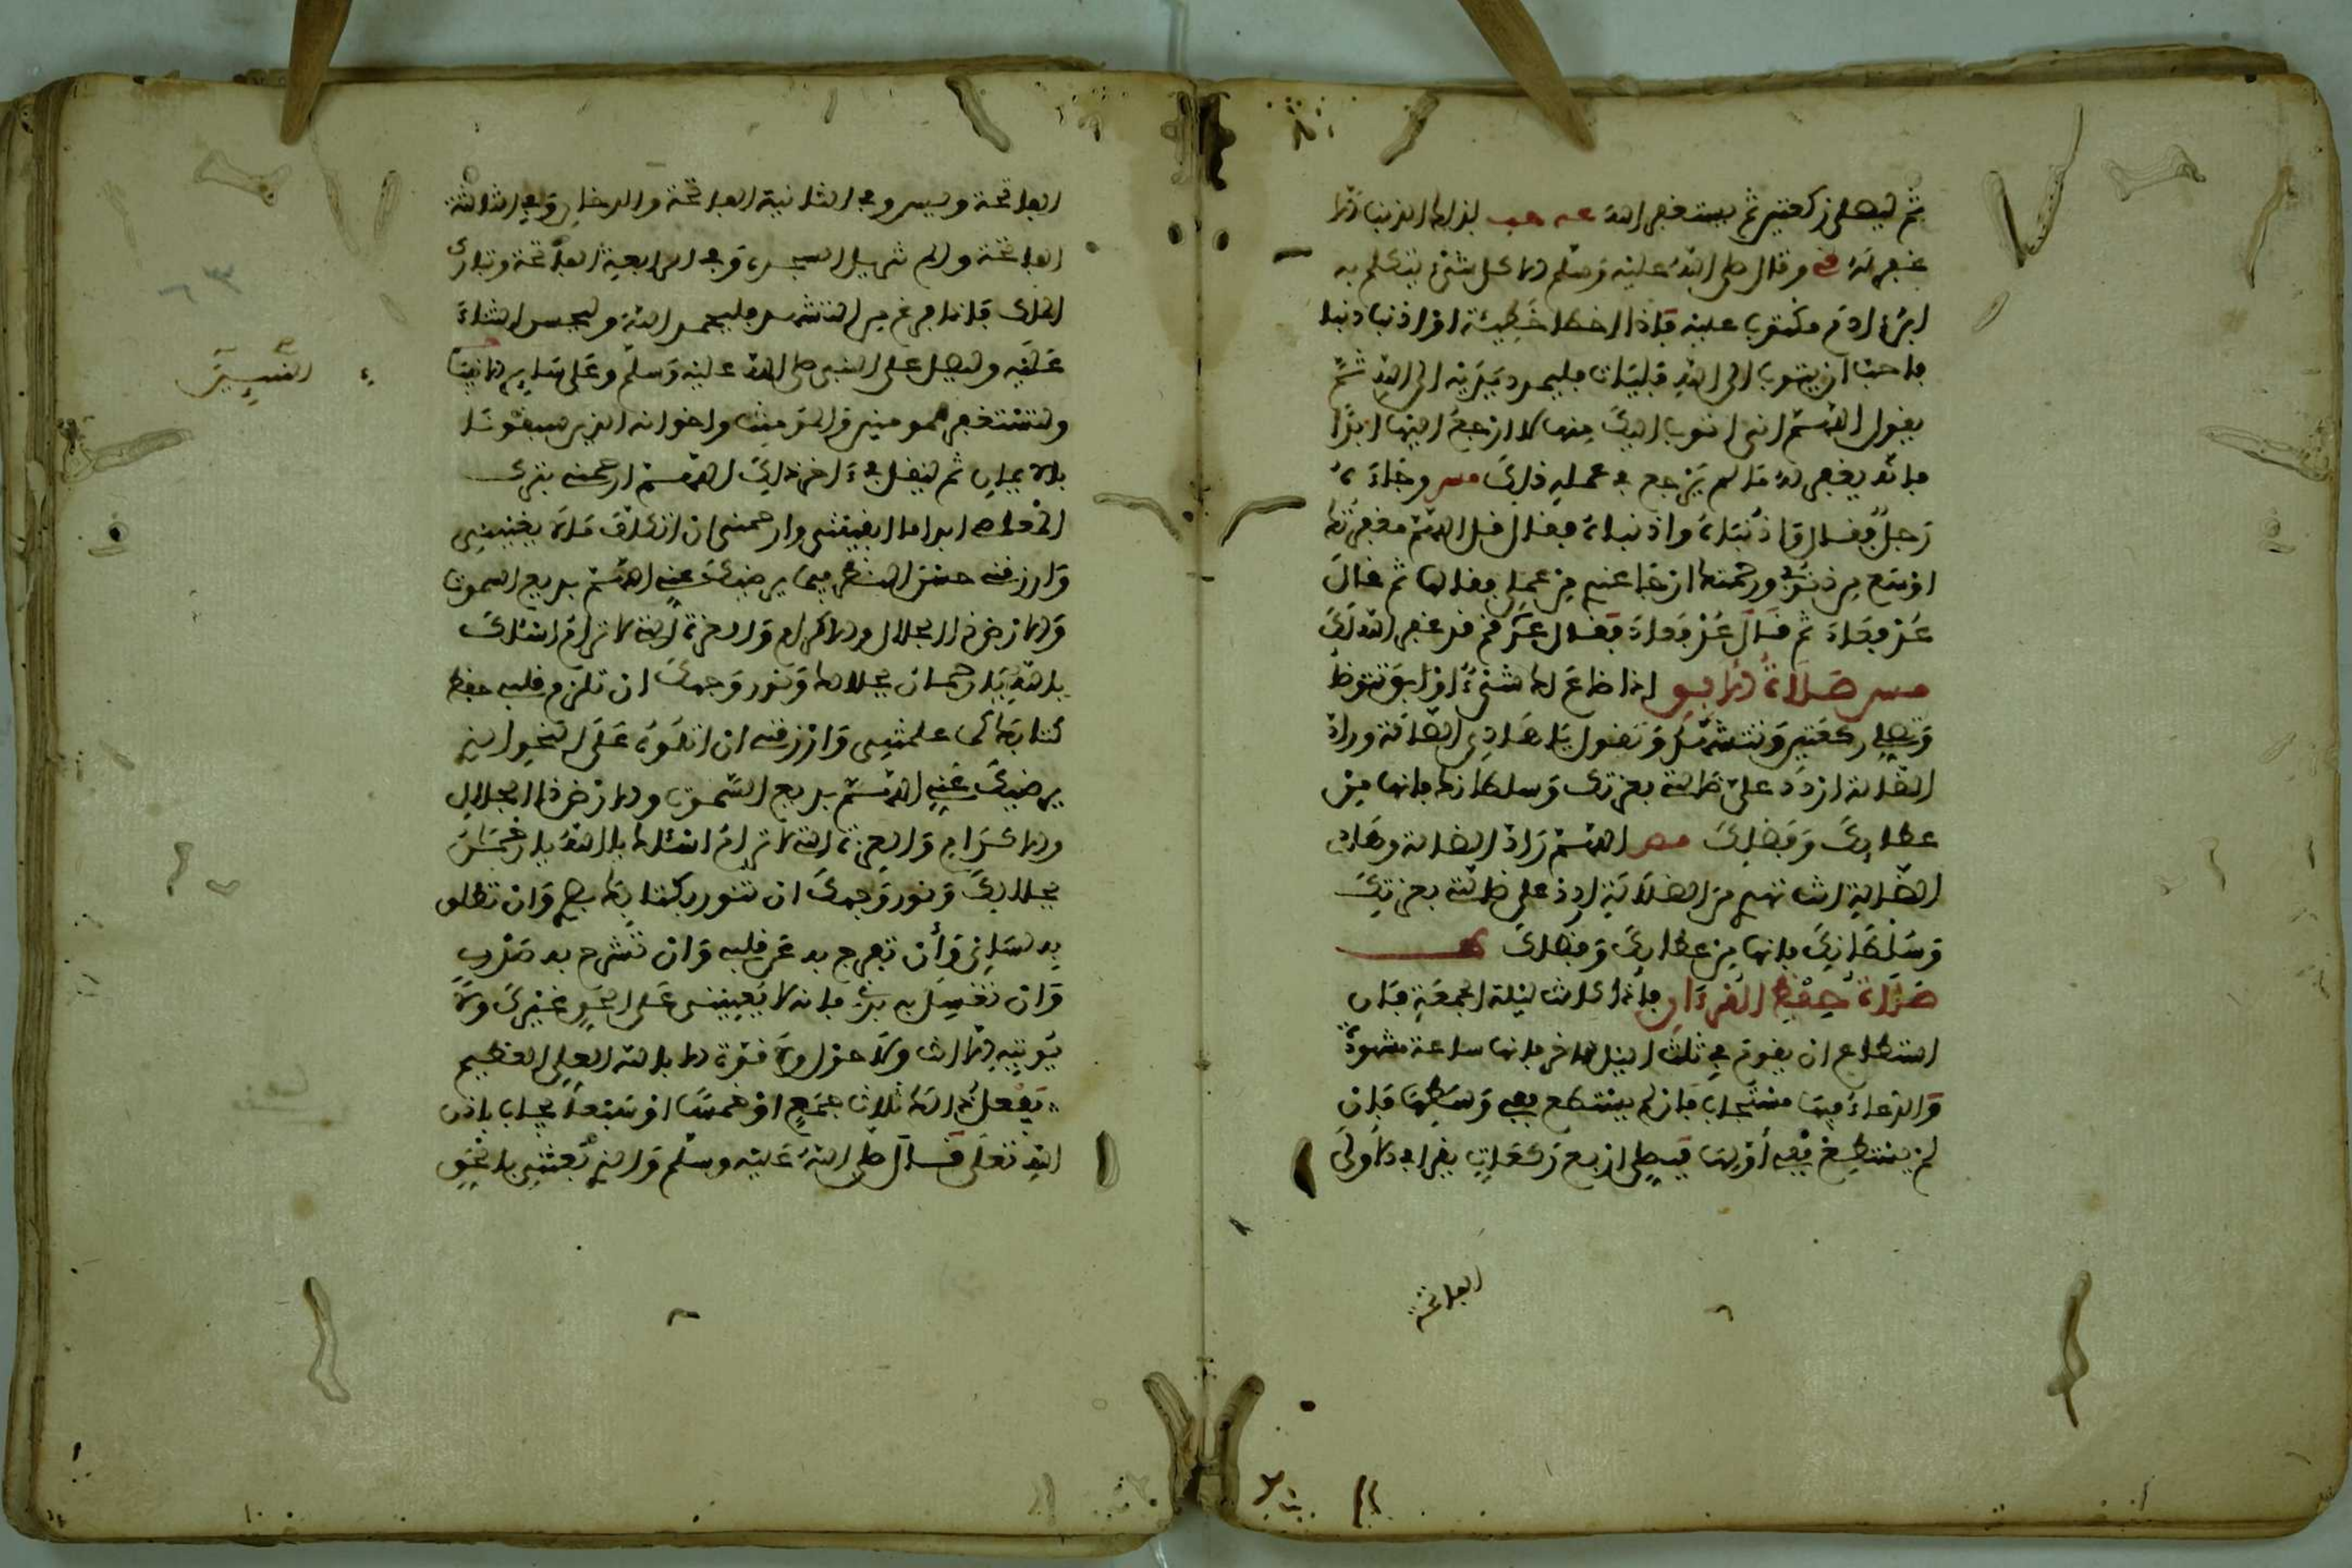 ثم ليصلي ركعتين ثم يستغفر الله عه حب لذلك الذنب الا
غفر له مس وقال صلى الله عليه وسلم كل شيء يتكلم به
ابن ءادم مكتوب عليه فإذا اخطا خطيئة او اذنب ذنبا
فاحب ان يتوب الى الله فليات فليمد يديه الى الله ثم
يقول اللهم اني اتوب اليك منها لا ارجع اليها ابدا
فانه يغفر له ما لم يرجع في عمله ذلك مس وجاء
رجل فقال واذنباه واذنباه فقال قل اللهم مغفرتك
اوسع من ذنوبي ورحمتك ارجا عندي من عملي فقالها ثم قال
عد فعاد ثم قال عد فعاد فقال قم قد غفر الله لك
مس صلاة الآبق اذا ضاع له شيء او ابق يتوضا
ويصلي ركعتين ويتشهد ويقول يا هادي الضالة وراد
الضالة اردد علي ضالتي بعزتك وسلطانك فانها من
عطائك وفضلك مص اللهم راد الضالة وهادي
الضالة انت تهدي من الضلالة اردد علي ضالتي بعزتك
وسلطانك فانها من عطائك وفضلك ط
صلاة حفظ القرءان فإذا كانت ليلة الجمعة فإن
استطاع ان يقوم في ثلث الليل الاخر فانها ساعة مشهودة
والدعاء فيها مستجاب فإن لم يستطع ففي وسطها فإن
لم يستطع ففي أولها فيصلي اربع ركعات يقرا في الاولى
الفاتحة
الفاتحة ويس وفي الثانية الفاتحة والدخان وفي الثالثة
الفاتحة والم تنزيل السجدة وفي الرابعة الفاتحة وتبارك
الملك فإذا فرغ من التشهد فليحمد الله وليحسن الثناء
عليه وليصل على النبي صلى الله عليه وسلم وعلى سائر الانبياء
النبيين
وليستغفر للمومنين والمومنات ولاخوانه الذين سبقونا
بالايمان ثم ليقل في ءاخر ذلك اللهم ارحمني بترك
المعاصي ابدا ما ابقيتني وارحمني ان اتكلف ما لا يعنيني
وارزقني حسن النظر فيما يرضيك عني اللهم بديع السموات
والارض ذا الجلال والاكرام والعزة التي لا ترام اسئلك
يالله يا رحمان بجلالك ونور وجهك ان تلزم قلبي حفظ
كتابك كما علمتني وارزقني ان اتلوه على النحو الذي
يرضيك عني اللهم بديع السموات والارض ذا الجلال
والاكرام والعزة التي لا ترام اسئلك يا الله يا رحمان
بجلالك ونور وجهك ان تنور بكتابك بصري وان تطلق
به لساني وأن تفرج به عن قلبي وان تشرح به صدري
وان تغسل به بدني فانه لا يعينني على الحق غيرك ولا
يوتيه الا انت ولا حول ولا قوة الا بالله العلي العظيم
يفعل ذلك ثلاث جمع او خمسا او سبعا يجاب بإذن
الله تعلى قال صلى الله عليه وسلم والذي بعثني بالحق